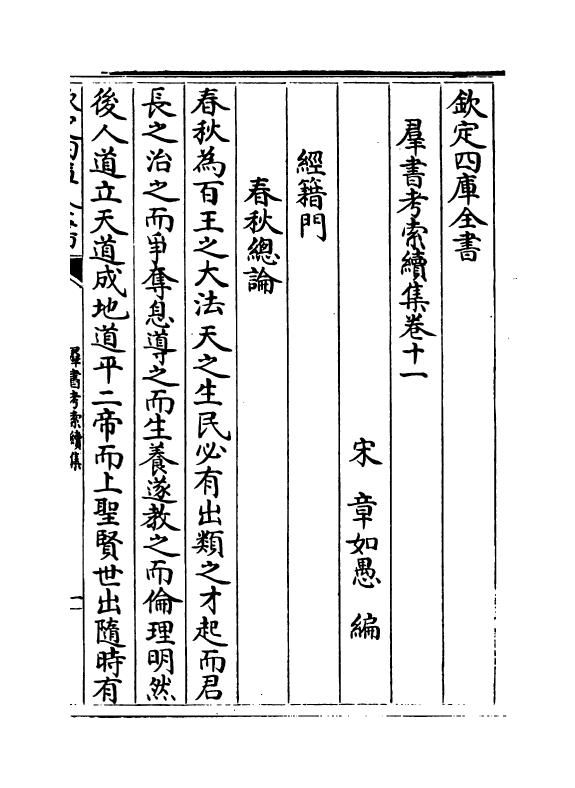 欽定四庫全書
羣書考索續集卷十一
宋 章如愚 編
經籍門
春秋總論
春秋為百王之大法天之生民必有出類之才起而君
長之治之而爭奪息導之而生養遂教之而倫理明然
後人道立天道成地道平二帝而上聖賢世出隨時有
羣書考索續集